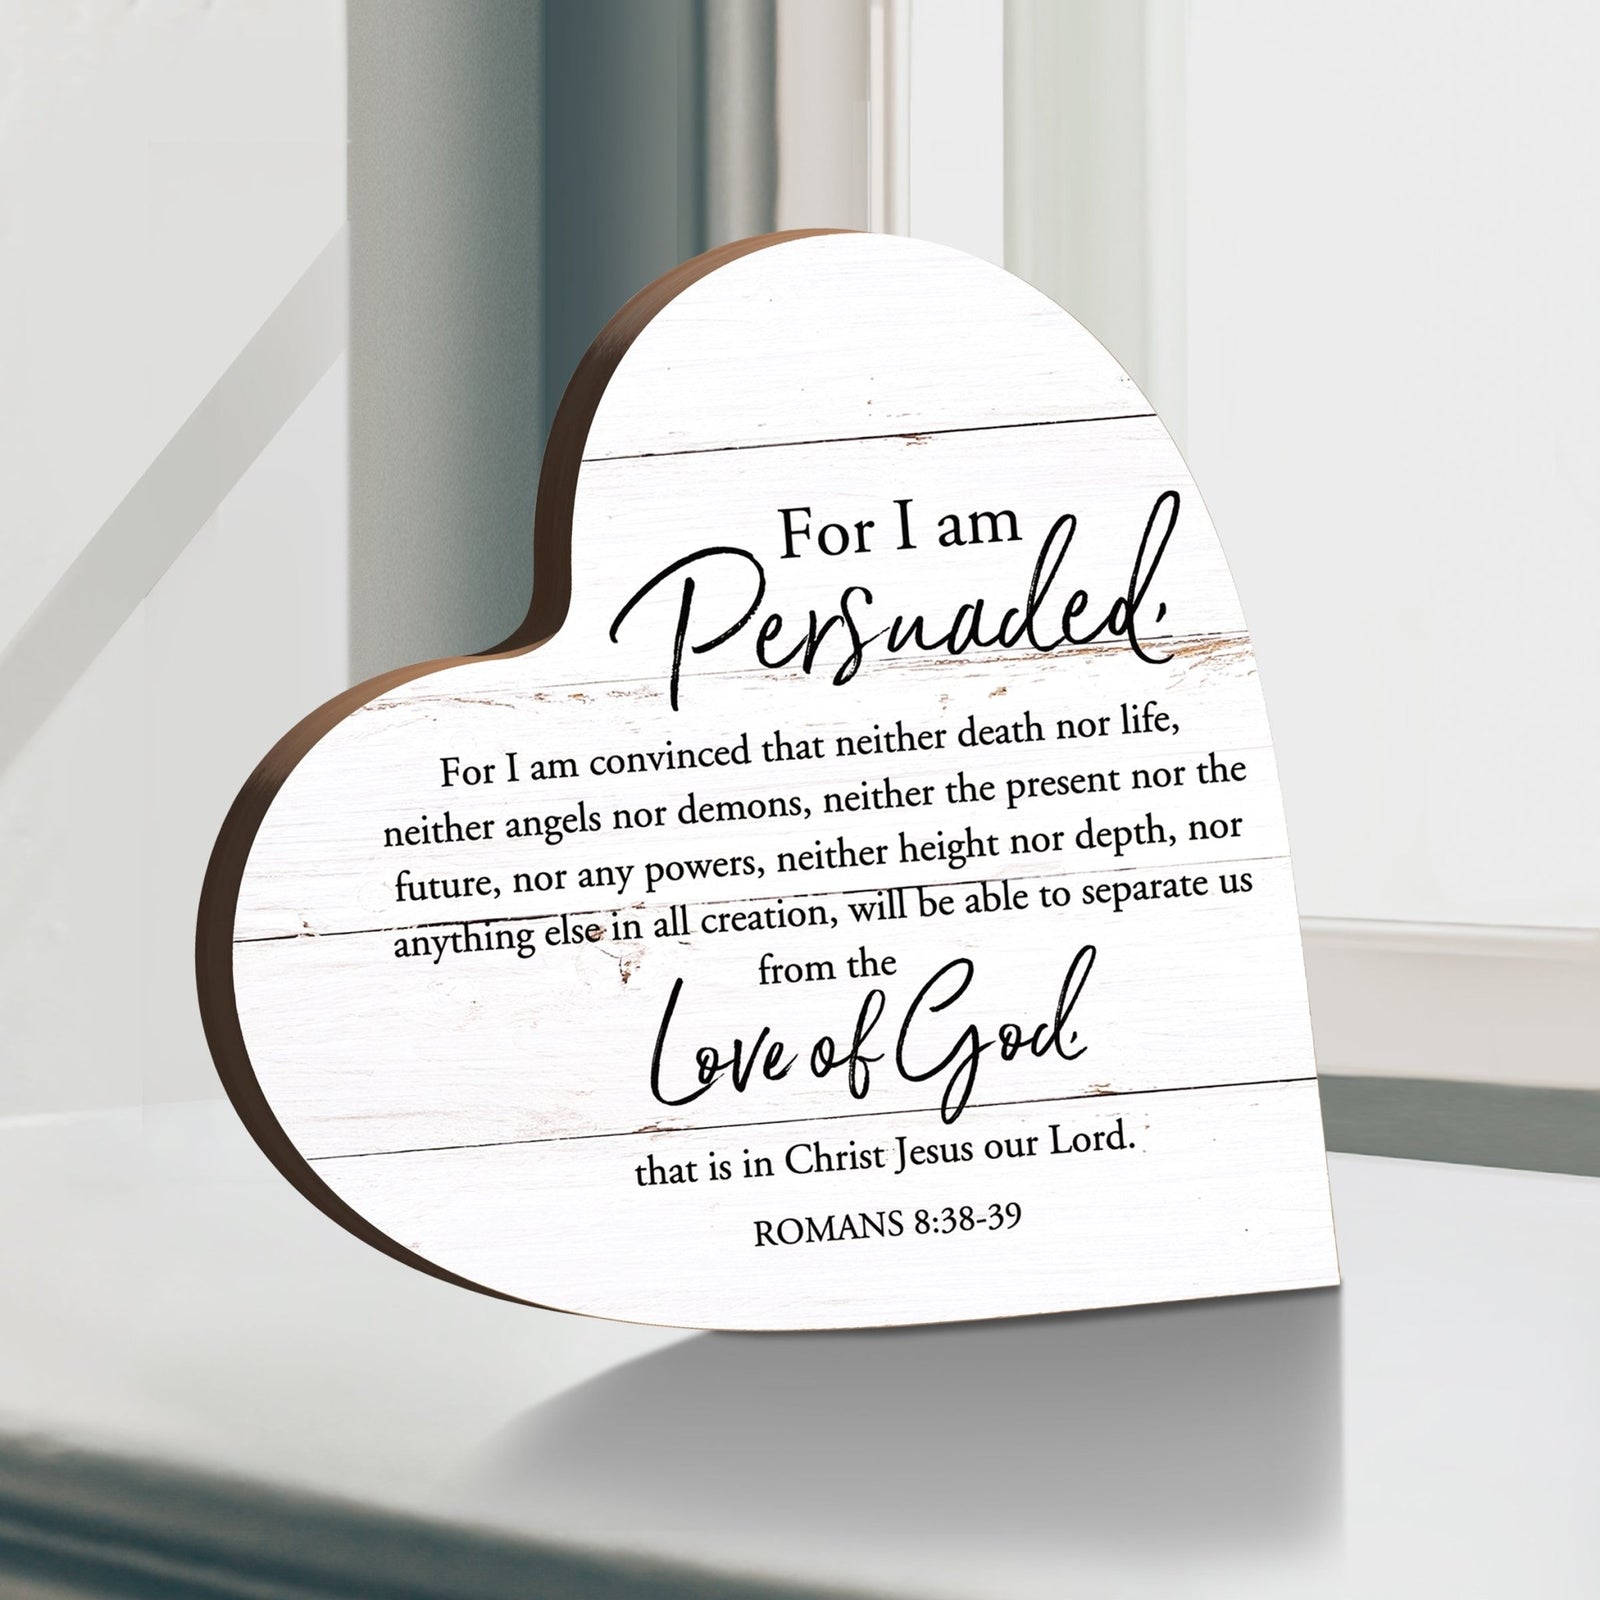 For I am
Persuaded,
For I am convinced that neither death nor life,
neither angels nor demons, neither the present nor the
future, nor any powers, neither height nor depth, nor
anything else in all creation, will be able to separate us
from the
Love of God,
that is in Christ Jesus our Lord.
ROMANS 8:38-39